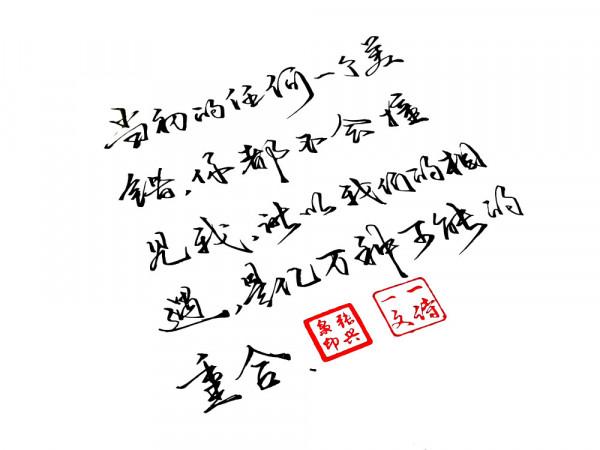 当初的任何一个差
错，你都不会撞
见我，所以我们的相
遇，是亿万种可能的
重合.
张兴泉印
一诗一文